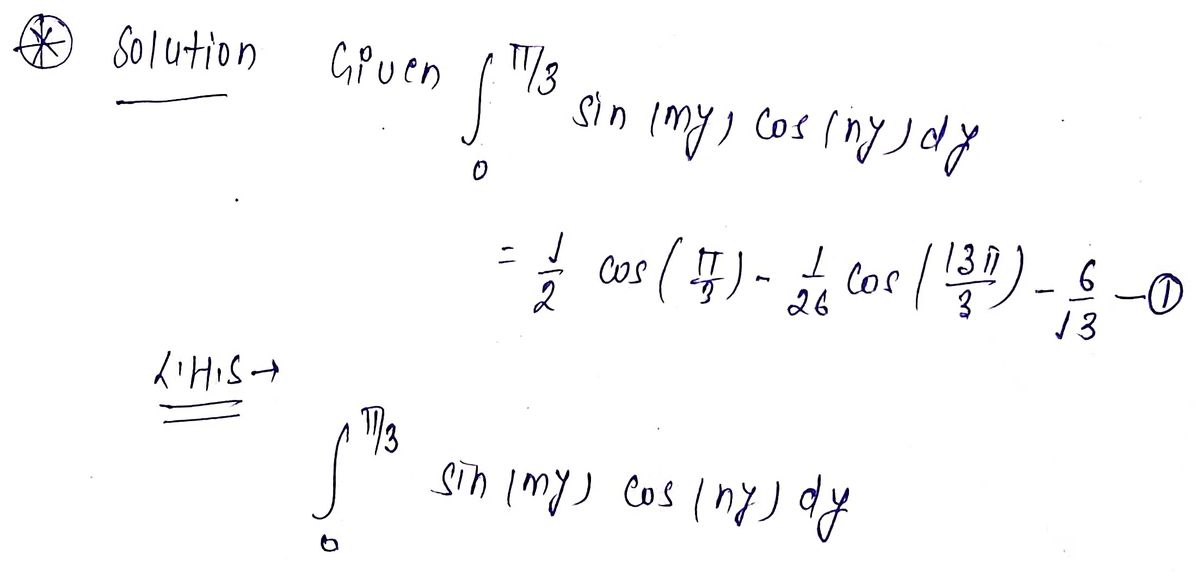 Solution Given ∫₀^{π/3} sin(my) cos(ny) dy
= 1/2 cos(π/3) - 1/26 cos(13π/3) - 6/13 - ①
L.H.S →
∫₀^{π/3} sin(my) cos(ny) dy